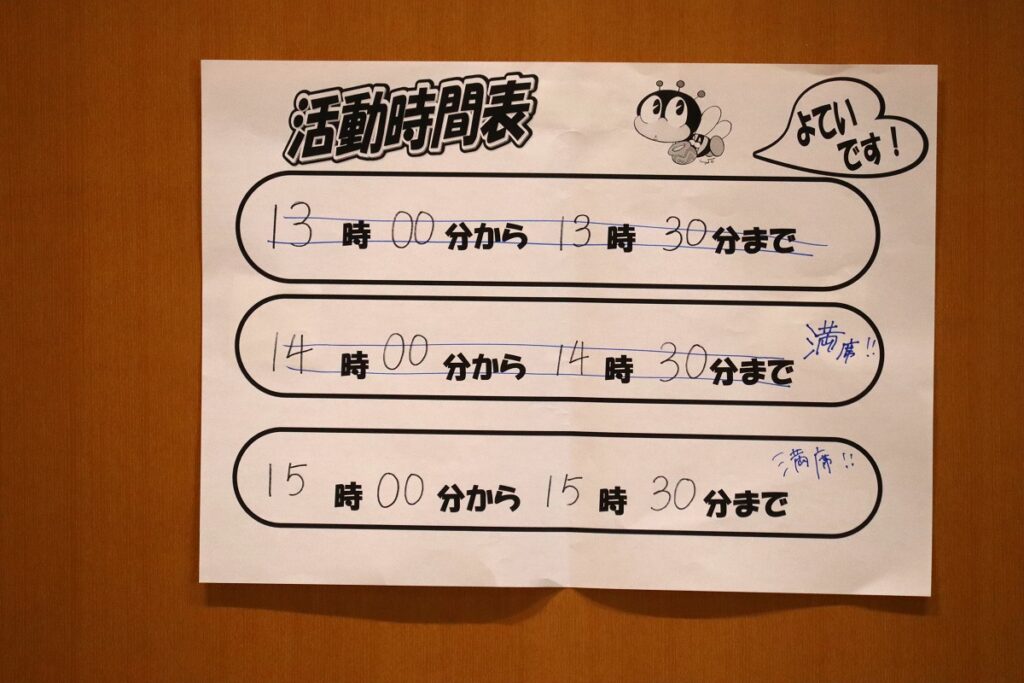 活動時間表
よてい
です!
13時00分から13時30分まで
14時00分から14時30分まで
満席!!
15時00分から15時30分まで
満席!!